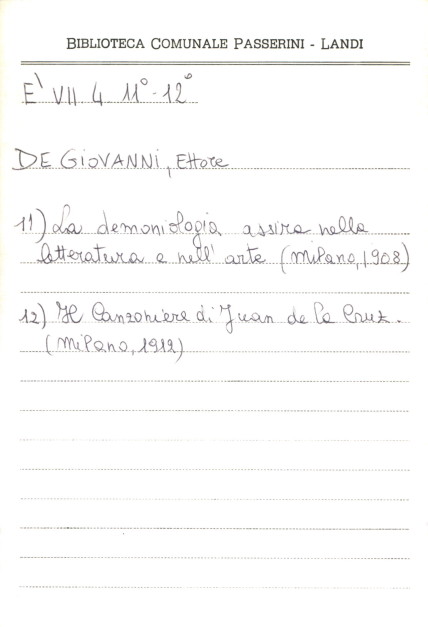 BIBLIOTECA COMUNALE PASSERINI - LANDI
E` VII 4 11° - 12°
DE GIOVANNI, Ettore
11) La demoniologia assira nella
letteratura e nell' arte (Milano, 1908)
12) Il Canzoniere di Juan de la Cruz.
(Milano, 1912)